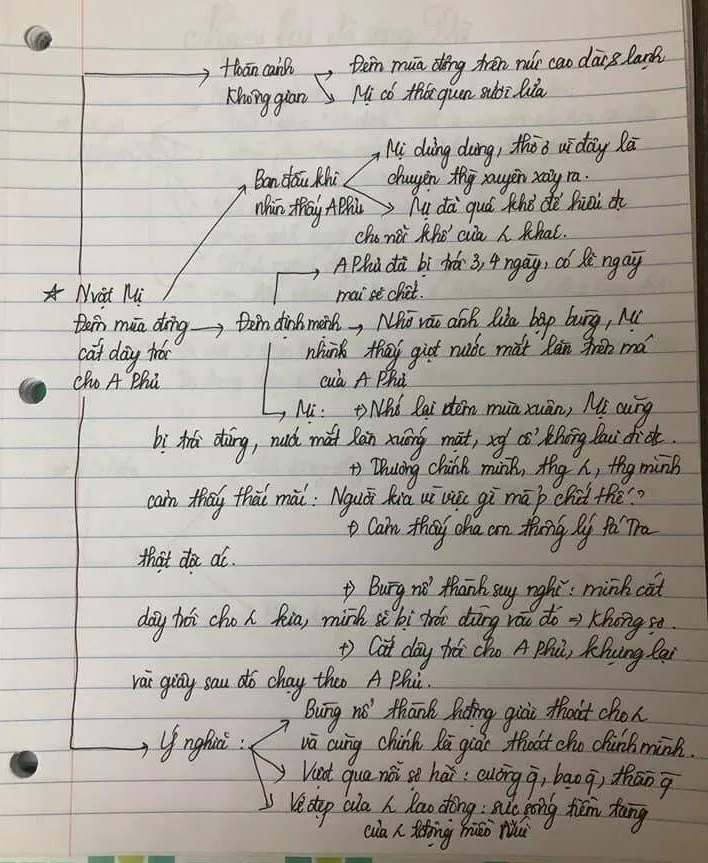 Hoàn cảnh → Đêm mùa đông trên núi cao dài & lạnh
Không gian → Mị có thói quen sưởi lửa
Mị dửng dưng, thờ ơ vì đây là
Ban đầu khi chuyện thg xuyên xảy ra.
nhìn thấy A Phủ → Mị đã quá khổ để hiểu đc
cho nỗi khổ của λ khác.
→ A Phủ đã bị trói 3, 4 ngày, có lẽ ngày
mai sẽ chết.
☆ Nvật Mị
Đêm mùa đông → Đêm định mệnh → Nhờ vào ánh lửa bập bùng, Mị
cắt dây trói nhình thấy giọt nước mắt lăn trên má
cho A Phủ của A Phủ
→ Mị: +) Nhớ lại đêm mùa xuân, Mị cũng
bị trói đứng, nước mắt lăn xuống mặt, xg' cổ không lau đi đc.
+) Thương chính mình, thg λ, thg mình
cảm thấy thắc mắc: Người kia vì việc gì mà p chết thế?
+) Cảm thấy cha con thống lý Pá Tra
thật độc ác.
+) Bùng nổ thành suy nghĩ: mình cắt
dây trói cho λ kia, mình sẽ bị trói đứng vào đó => Không sợ.
+) Cắt dây trói cho A Phủ, khựng lại
vài giây sau đó chạy theo A Phủ.
Bùng nổ thành hướng giải thoát cho λ
→ Ý nghĩa: và cũng chính là giải thoát cho chính mình.
→ Vượt qua nỗi sợ hãi: cường q̄, bạo q̄, thần q̄
→ Vẻ đẹp của λ lao động: sức sống tiềm tàng
của λ miền Núi